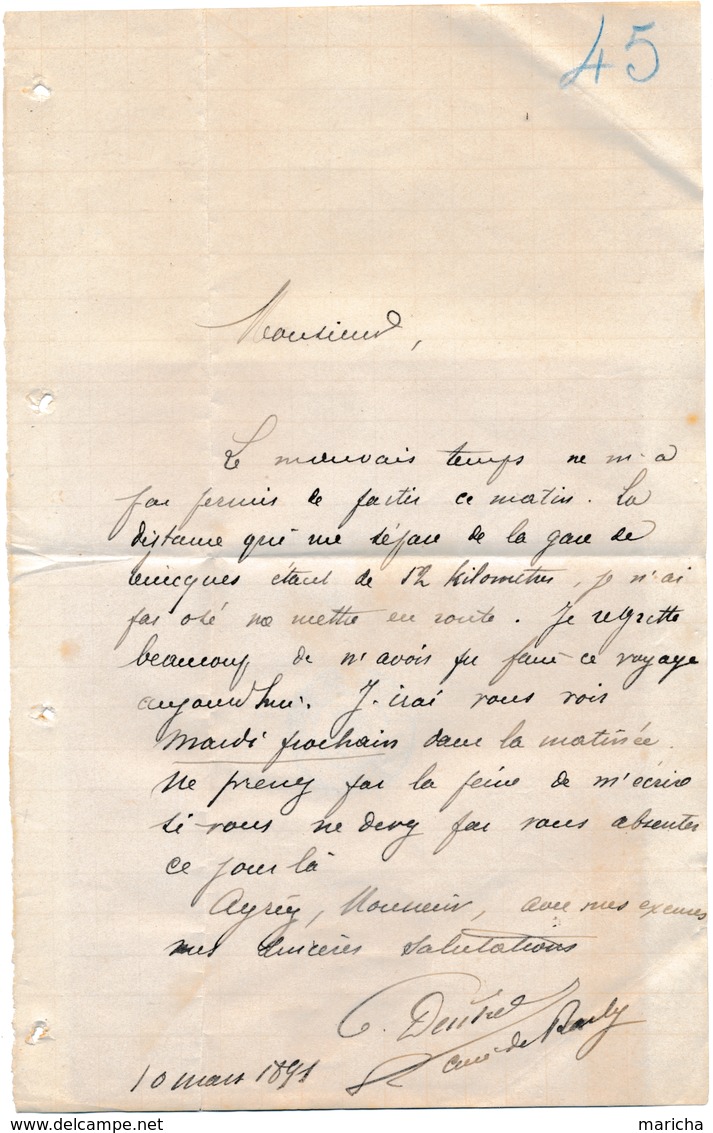 45
Monsieur,
Le mauvais temps ne m'a
pas permis de partir ce matin. La
distance qui me sépare de la gare de
étant de 12 kilomètres, je n'ai
pas osé me mettre en route. Je regrette
beaucoup de n'avoir pu faire ce voyage
aujourd'hui. J'irai vous voir
Mardi prochain dans la matinée.
Ne prenez pas la peine de m'écrire
si vous ne devez pas vous absenter
ce jour là
Agréez, Monsieur, avec mes excuses
mes sincères salutations
curé de
10 mars 1891
delcampe.net
maricha